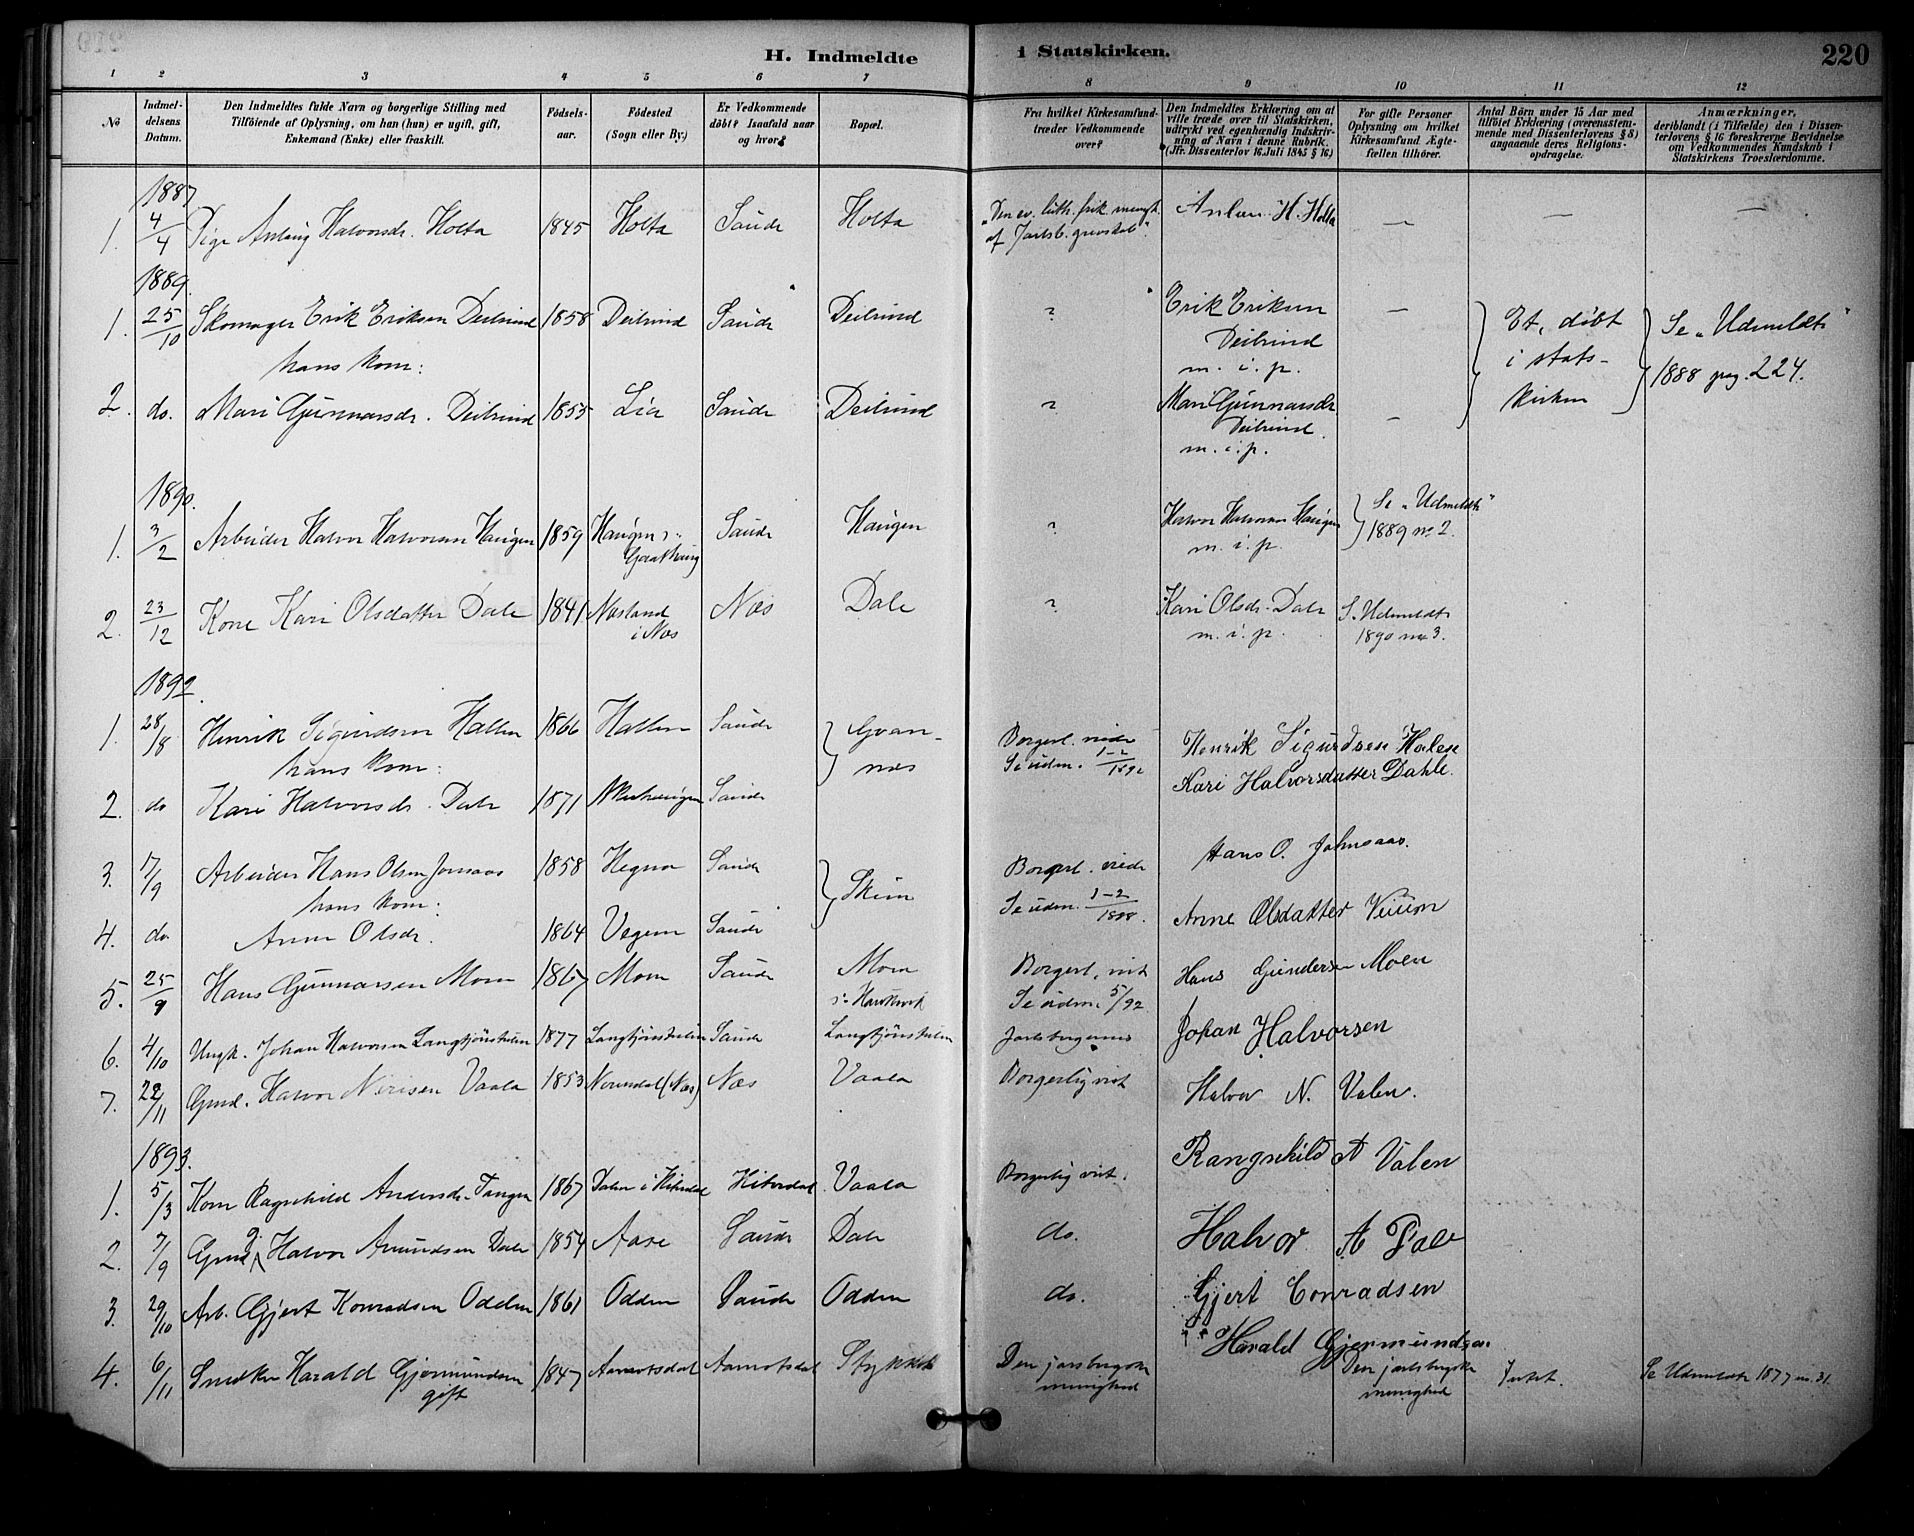 H. Indmeldte i Statskirken. 220
1 2 3 4 5 6 7 8 9 10 11 12
No
Indmeldelsens Datum.
Den Indmeldtes fulde Navn og borgerlige Stilling med Tilföiende af Oplysning, om han (hun) er ugift, gift, Enkemand (Enke) eller fraskilt.
Födselsaar.
Födested (Sogn eller By.)
Er Vedkommende döbt? Isaafald naar og hvor?
Bopæl.
Fra hvilket Kirkesamfund træder Vedkommende over?
Den Indmeldtes Erklæring om at ville træde over til Statskirken, udtrykt ved egenhændig Indskrivning af Navn i denne Rubrik. (Jfr. Dissenterlov 16. Juli 1845 § 16)
For gifte Personer Oplysning om hvilket Kirkesamfund Ægtefællen tilhörer.
Antal Börn under 15 Aar med tilföiet Erklæring (overensstemmende med Dissenterlovens § 8) angaaende deres Religionsopdragelse.
Anmærkninger, deriblandt (i Tilfælde) den i Dissenterlovens § 16 foreskrevne Bevidnelse om Vedkommendes Kundskab i Statskirkens Troeslærdomme.
1887
1. 4/4 Pige Anlaug Halvorsdr. Holta 1845 Holta Saude Holta "Den ev. luth. frik. menigh. af Jarlsb. grevskab". Anlau H. Holta — — —
1889.
1. 25/10 Skomager Erik Eriksen Deilrind 1858 Deilrind Saude Deilrind ? Erik Eriksen Deilrind m. i. p. — Et, döbt i statskirken Se "Udmeldte" 1888 pag. 224.
hans kone:
2. do. Mari Gunnarsdr. Deilrind 1855 Lia Saude Deilrind ? Mari Gunnarsdr Deilrind m. i. p. —
1890.
1. 3/2 Arbeider Halvor Halvorsen Haugen 1859 Haugen Saude Haugen ? Halvor Halvorsen Haugen m. i. p. Se "Udmeldte" 1889 no 2.
2. 23/12 Kone Kari Olsdatter Dale 1841 Næsland i Næs Næs Dale ? Kari Olsdr. Dale m. i. p. S. Udmeldte 1890 no 3.
1892.
1. 28/8 Henrik Sigurdsen Hallen 1866 Hallen Saude Borgerl. viede Se udm. 1-2/1892 Henrik Sigurdsen Halen
hans kone:
2. do Kari Halvorsdr. Dale 1871 Saude Kari Halvorsdatter Dahle.
3. 17/9 Arbeider Hans Olsen Jonsaas 1858 Hegna Saude Borgerl. viede Se udm. 1-2/1888. Hans O. Johnsaas.
hans kone:
4. do Anne Olsdr. 1864 Vegem Saude Anne Olsdatter Veium
5. 25/9 Hans Gunnarsen Moen 1867 Moen Saude Moen Borgerl. viet Se udm. 5/92 Hans Gundersen Moen
6. 4/10 Ungk. Johan Halvorsen Langtjönsholm 1877 Langtjönsholm Saude Langtjönsholm Jarlsbergernes Johan Halvorsen
7. 22/11 Gmd. Halvor Nirisen Vaala 1853 (Næs) Næs Vaala Borgerlig viet Halvor N. Valen.
1893.
1. 5/3 Kone Ragnhild Andersdr. Tangen 1867 Dalen i Hiterdal Hiterdal Vaala Borgerlig viet. Rangnehild A Valen
2. 7/9 Gmd. Halvor Amundsen Dale 1854 Aase Saude Dale do. Halvor A Dale
3. 29/10 Arb. Gjert Konradsen Odden 1861 Odden Saude Odden do. Gjert Conradsen
4. 6/11 Snedker Harald Gjermundsen gift 1847 Aamotsdal Aamotsdal Den jarlsbergske menighed Harald Gjermundsen Den jarlsbergske menighed Intet. Se Udmeldte 1877 no. 31.